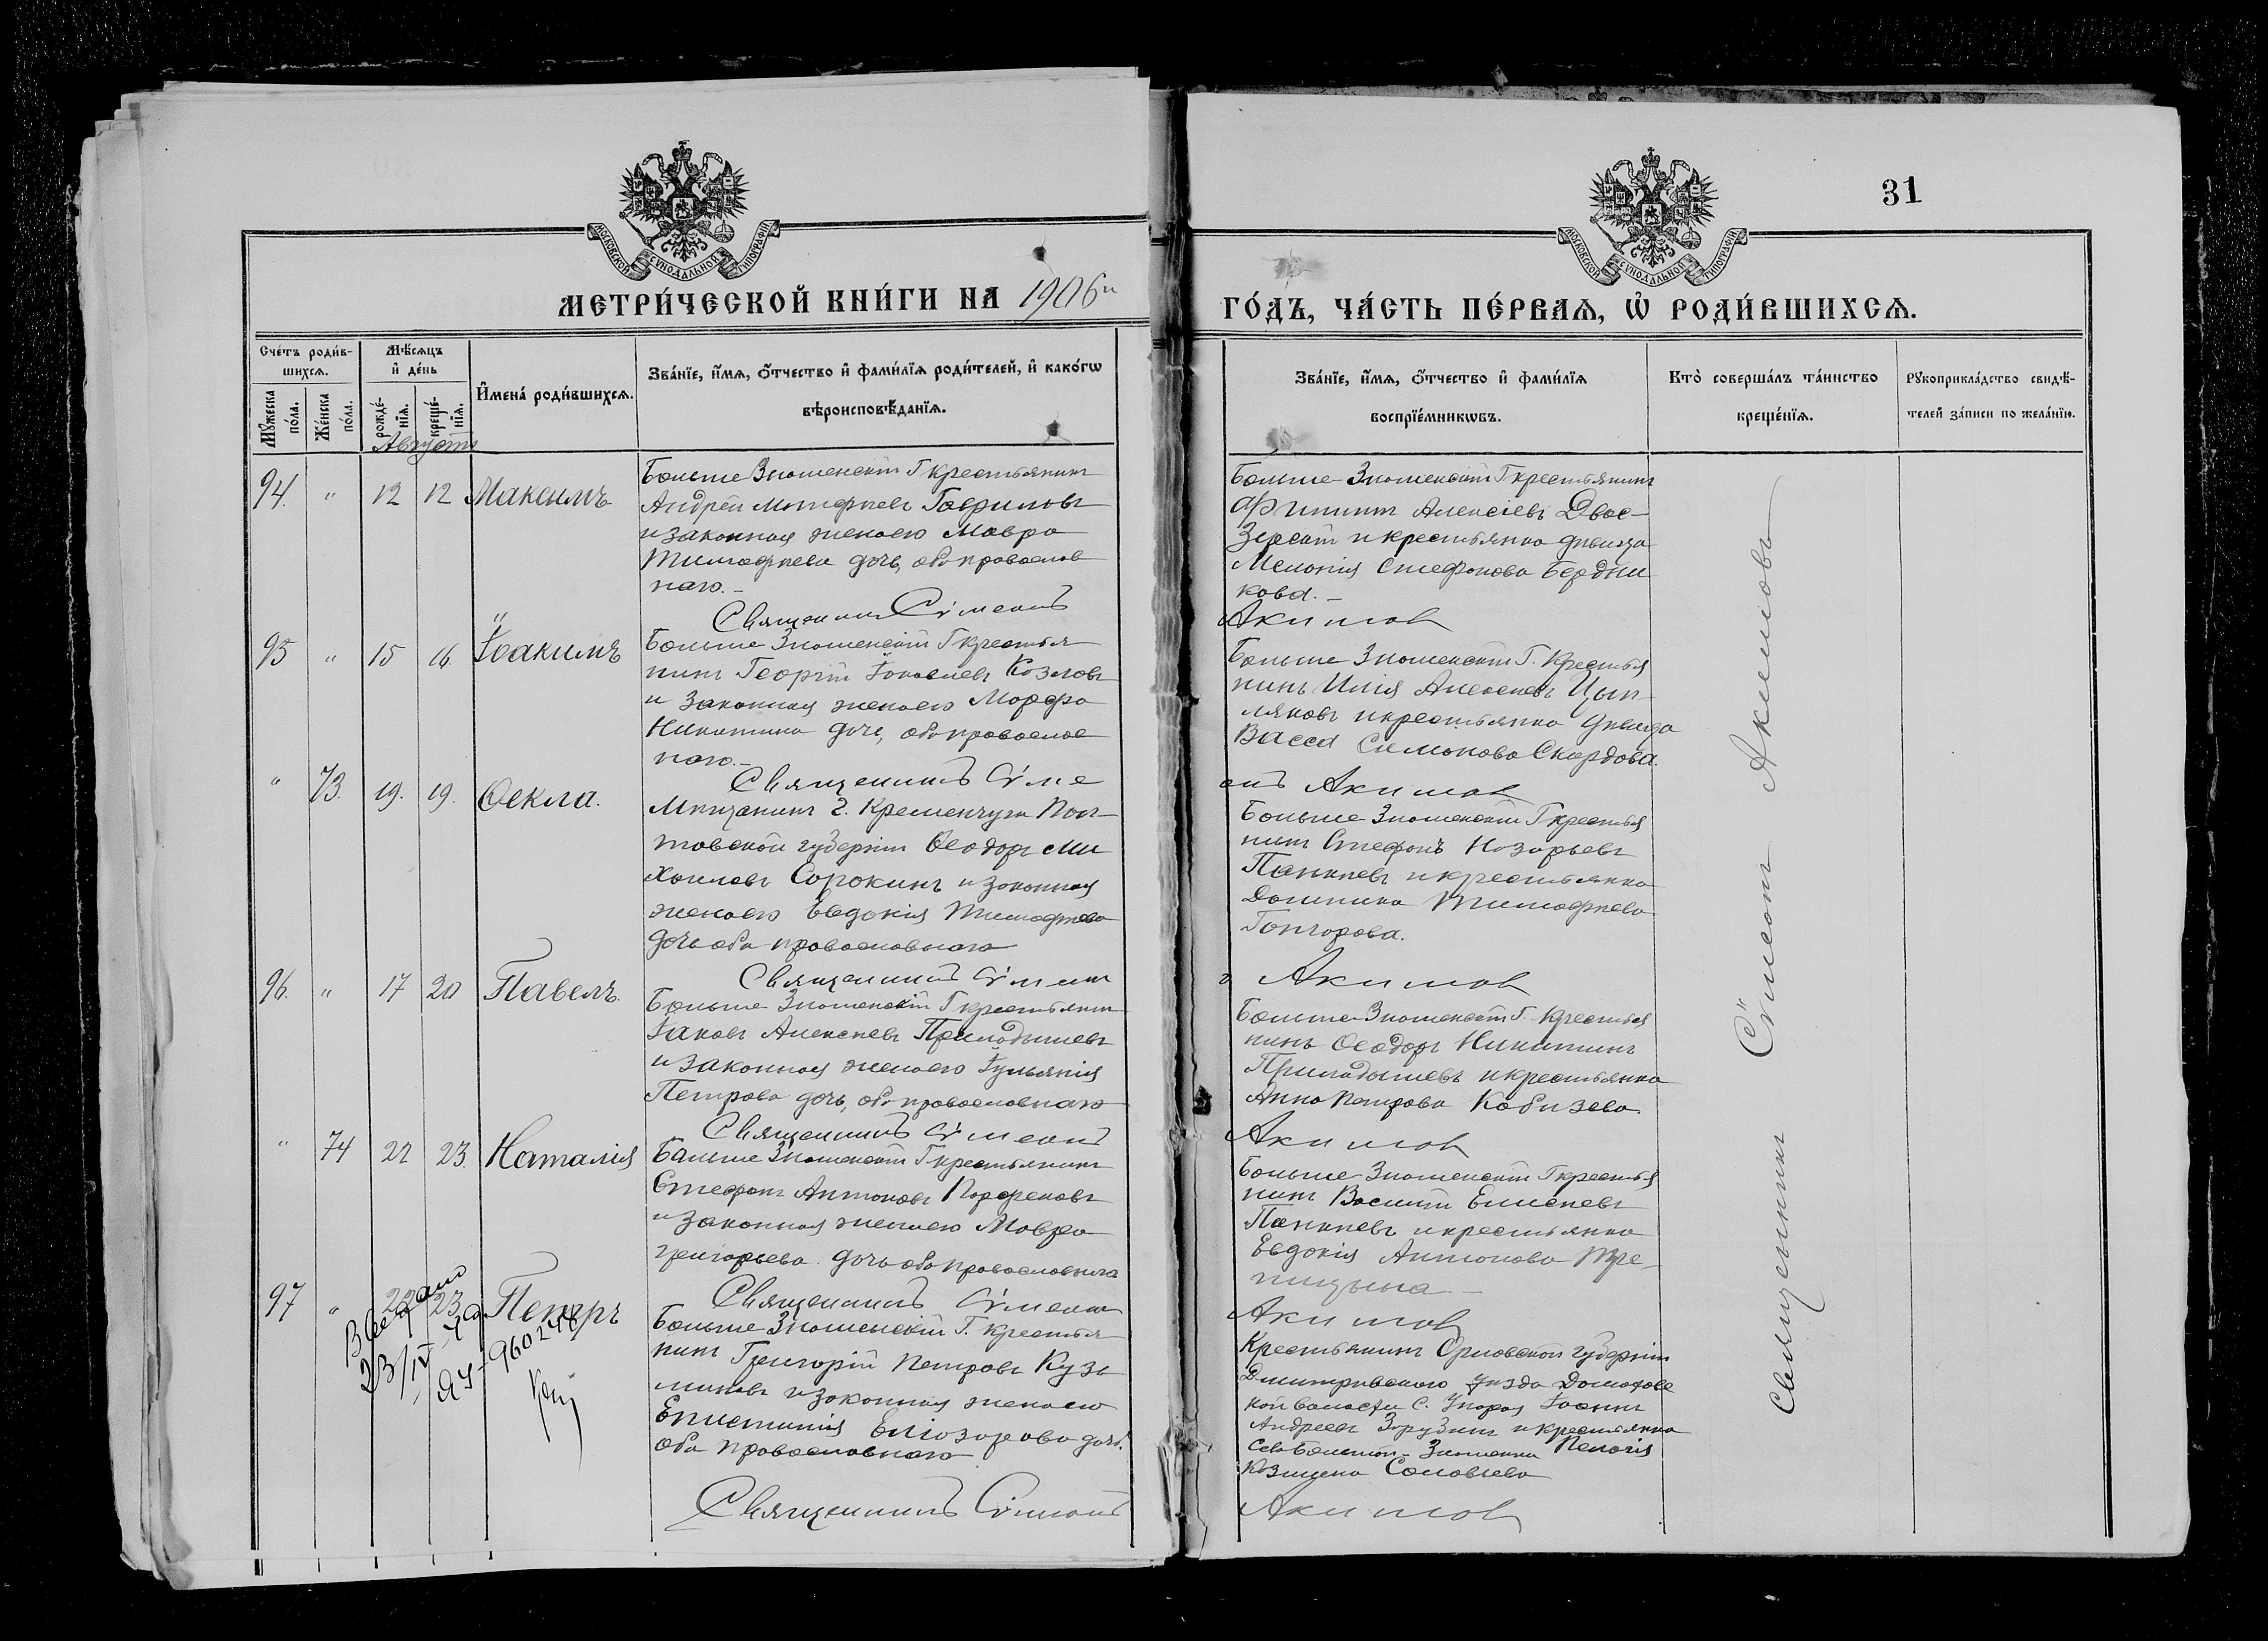 31
МОСКОВСКОЙ СУНОДАЛЬНОЙ ТИПОГРАФІИ
МОСКОВСКОЙ СУНОДАЛЬНОЙ ТИПОГРАФІИ
МЕТРИ́ЧЕСКОЙ КНИ́ГИ НА 1906й
ГО́ДЪ, ЧА́СТЬ ПЕ́РВАѦ, Ѡ҆ РОДИ́ВШИХСѦ.
Сче́тъ роди́в-
шихсѧ.
Мѹ́жеска по́ла.
Же́нска по́ла.
Мѣ́сѧцъ и҆ де́нь
рожде́-нїѧ.
креще́-нїѧ.
И҆мена̀ роди́вшихсѧ.
Зва́нїе, и҆́мѧ, ѻ҆́тчество и҆ фами́лїѧ роди́телей, и҆ како́гѡ
вѣроисповѣ́данїѧ.
Зва́нїе, и҆́мѧ, ѻ҆́тчество и҆ фами́лїѧ
воспрїе́мникѡвъ.
Кто̀ соверша́лъ та́инство
креще́нїѧ.
Рѹкоприкла́дство свидѣ́-
телей за́писи по жела́нїю.
Августъ
94. " 12 12 Максимъ
Больше Знаменскій Г крестьянинъ
Андрей Матфѣевъ Гавриловъ
и законная жена его Мавра
Тимофѣева дочь, оба православ
наго.-
Священникъ Сѵмеонъ
Больше Знаменскій Г крестьянинъ
Филиппъ Алексіевъ Двое-
Зерскій и крестьянка дѣвица
Меланія Стефанова Бердни
кова.-
Акимов
95 " 15 16. Іоакимъ
Больше Знаменскій Г крестья
нинъ Георгій Іаковлевъ Козловъ
и законная жена его Марфа
Никитина дочь, оба православ
наго.-
Священникъ Сѵме
Больше Знаменскій Г. Крестья
нинъ Илія Алексѣевъ Цып
ляковъ и крестьянка дѣвица
Васса Симонова Скардова.
онъ Акимов
" 73. 19. 19. Ѳекла.
Мѣщанинъ г. Кременчуга Пол-
тавской губерніи Ѳеодоръ Ми
хаиловъ Сорокинъ и законная
жена его Евдокія Тимофѣева
дочь оба православнаго
Священникъ Сѵмеон
Больше Знаменскій Г крестья
нинъ Стефанъ Назарьевъ
Паннѣевъ и крестьянка
Домника Тимофѣева
Гончарова.
ъ Акимов
96. " 17 20 Павелъ.
Больше Знаменскій Г крестьянин
Іаковъ Алексѣевъ Приладышевъ
и законная жена его Іуліанія
Петрова дочь, оба православнаго
Священникъ Сѵмеонъ
Больше Знаменскій Г. Крестья
нинъ Ѳеодоръ Никитинъ
Приладышевъ и крестьянка
Анна Петрова Кобизева
Акимов
" 74 22 23. Наталія
Больше Знаменскій Г крестьянинъ
Стефанъ Антоновъ Парфеновъ
и законная жена его Мавра
Григорьева дочь оба православнаго
Священникъ Сѵмеон
Больше Знаменскій Г крестья
нинъ Василій Елисеевъ
Паннѣевъ и крестьянка
Евдокія Антонова Тре-
пицына
Акимов
97 " 22 23 Петръ
23/IV
960248
Больше Знаменскій Г. крестья
нинъ Григорій Петровъ Кузь
миновъ и законная жена его
Епистимія Еліозарова дочь.
оба православнаго
Священникъ Сѵмеонъ
Крестьянинъ Орловской губерніи
Дмитровскаго уѣзда Домахов
кой волости С. Упорая Іоаннъ
Андреевъ Зарубинъ и крестьянка
села Большой-Знаменки Пелагія
Козмина Соловьева
Акимов
Священникъ Сѵмеонъ Акимовъ